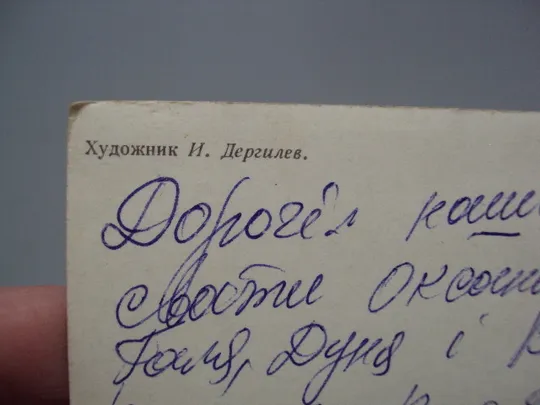 Художник И. Дергилев.
Дорогёі наши
свати Оксан
Галя, Дуня і В